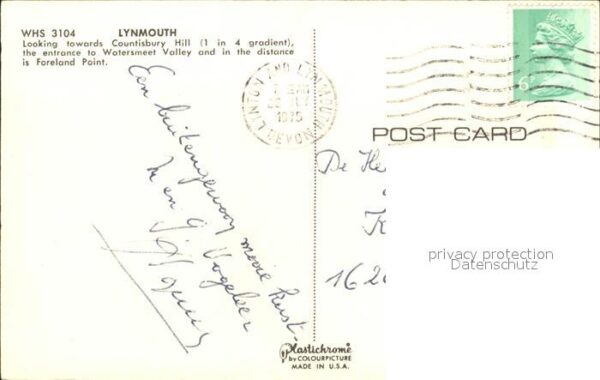 WHS 3104 LYNMOUTH
Looking towards Countisbury Hill (1 in 4 gradient),
the entrance to Watersmeet Valley and in the distance
is Foreland Point.
LYNTON AND LYNMOUTH
1975
DEVON
6P
POST CARD
Een buitengewoon mooie kust.
en G Vogeleer
De He
K
1620
privacy protection
Datenschutz
Plastichrome
by COLOURPICTURE
MADE IN U.S.A.